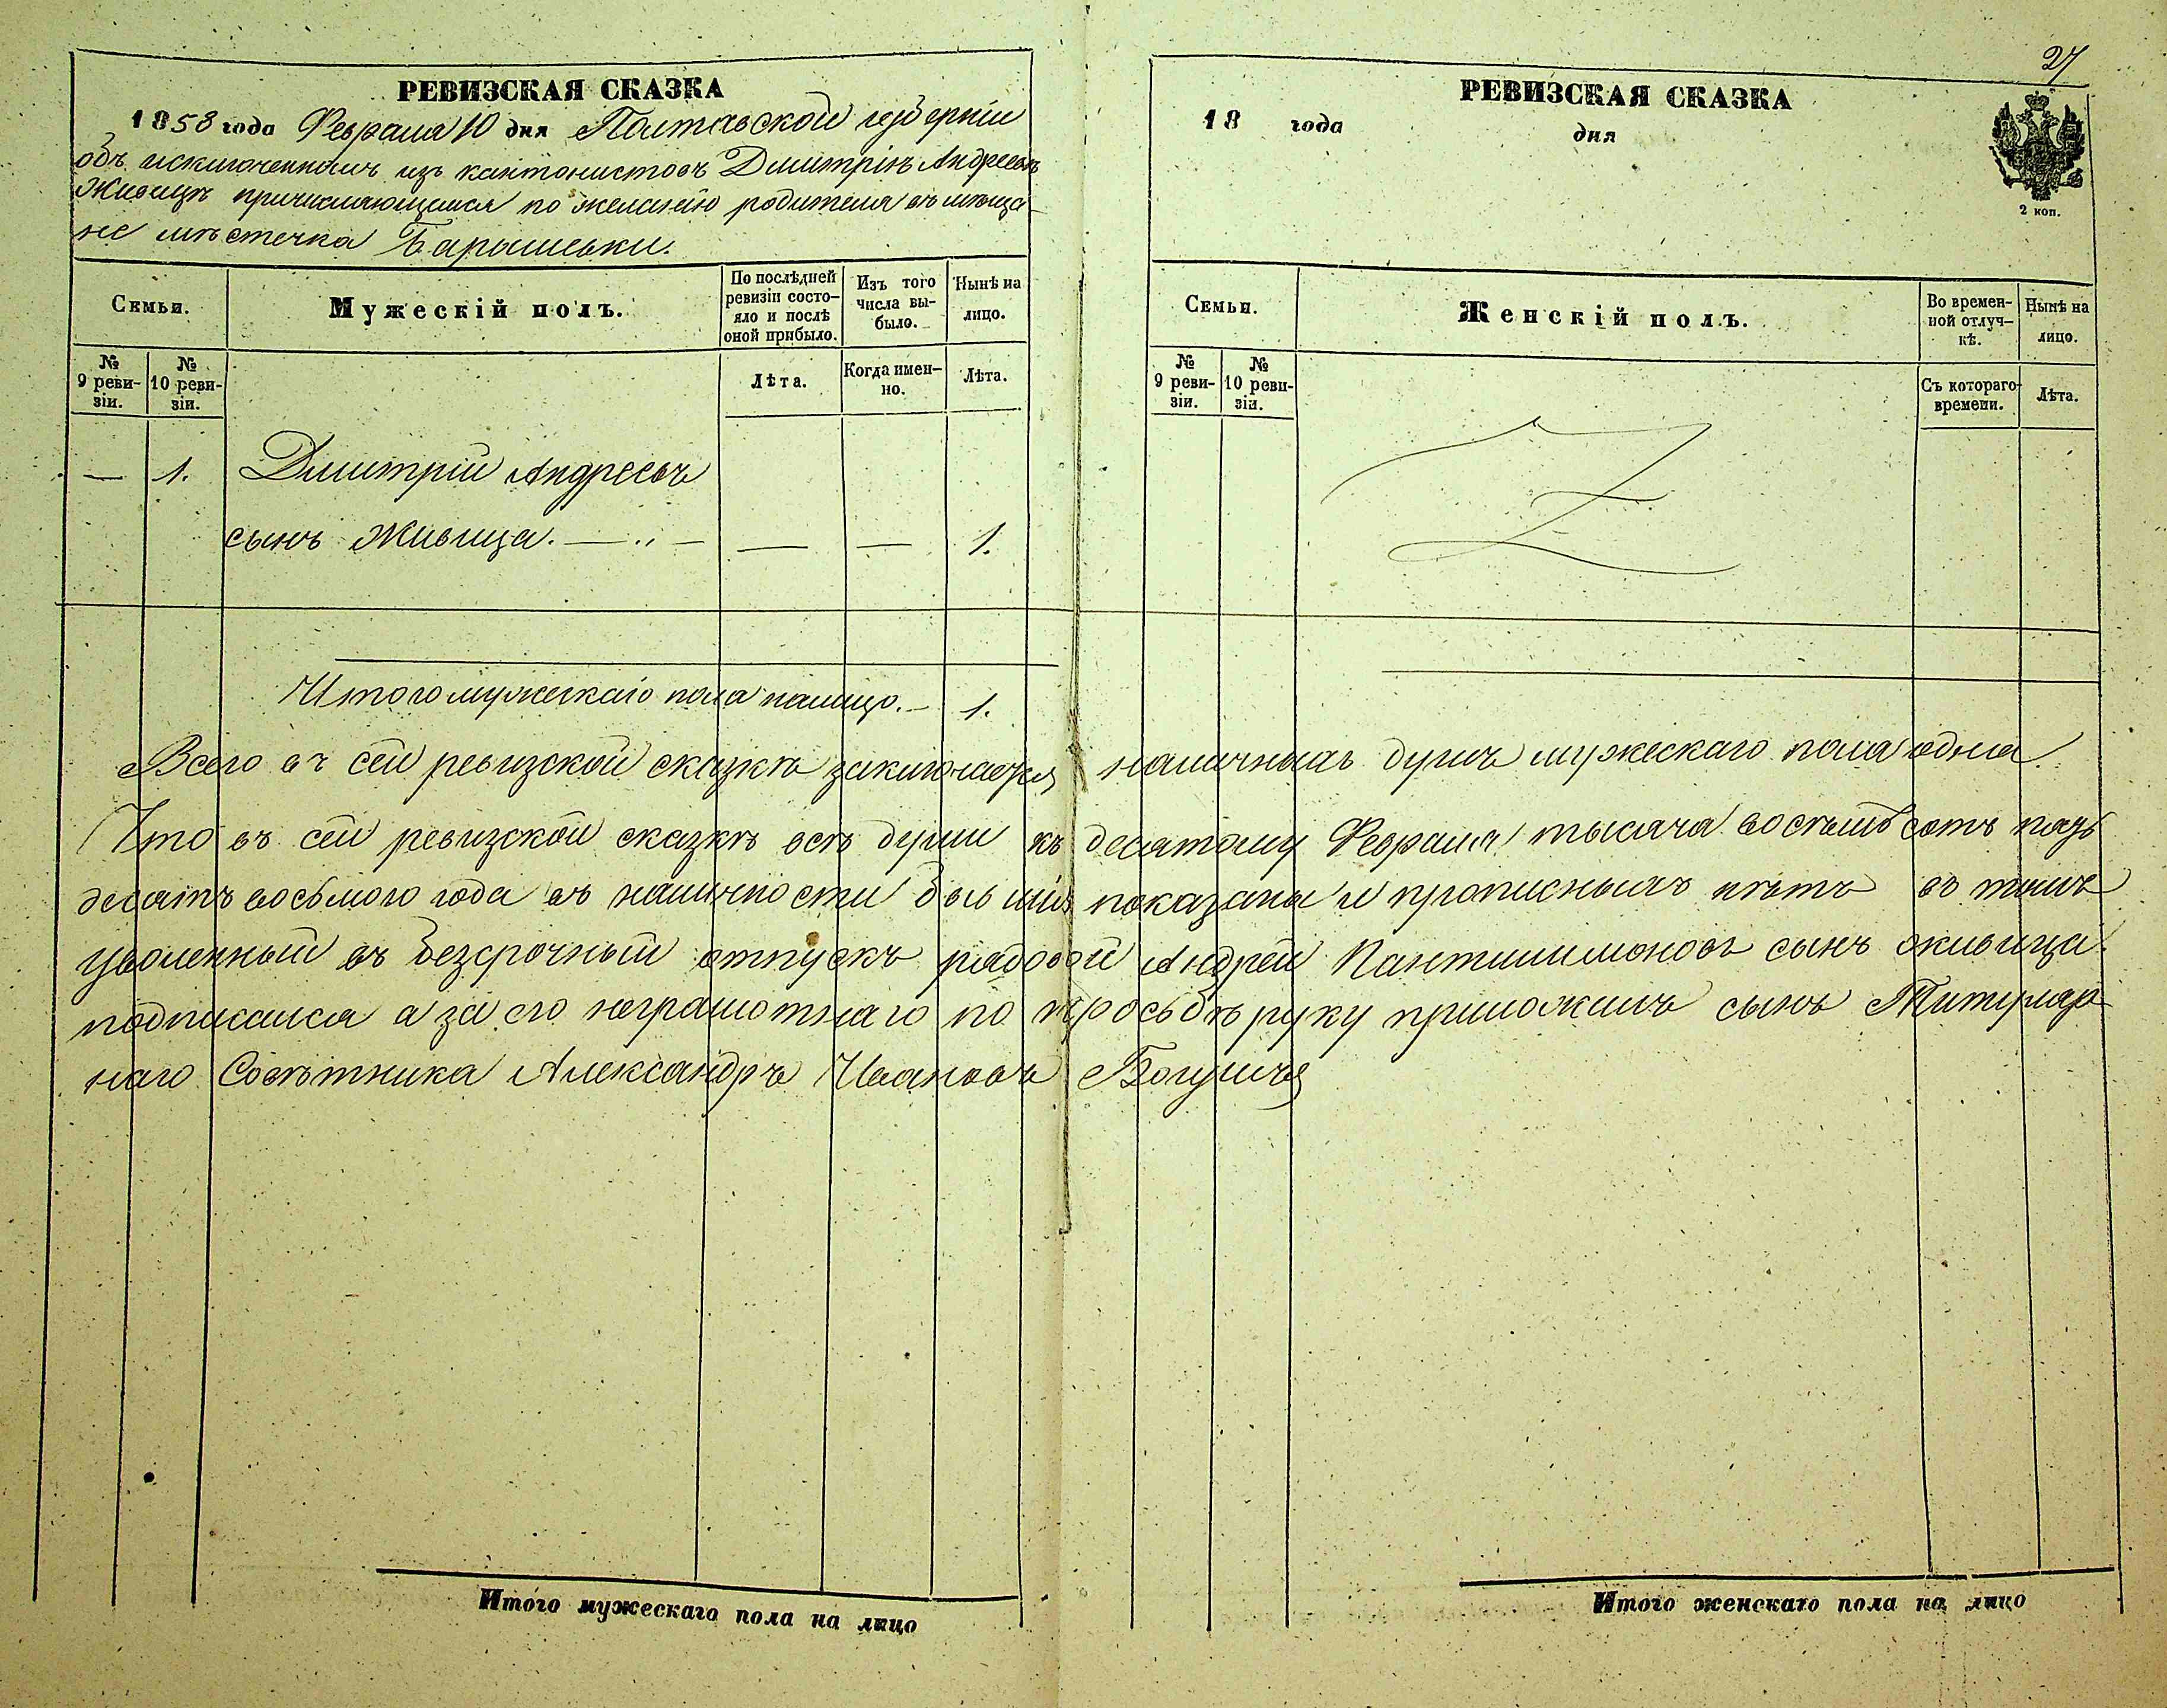 27
РЕВИЗСКАЯ СКАЗКА
1858 года Февраля 10 дня Полтавской губерніи
объ исключенномъ изъ кантонистовъ Дмитріѣ Андреевѣ
Живицѣ причисляющемся по желанію родителя въ мѣща-
не мѣстечка Барышевки.
Семьи.
Мужескій полъ.
По послѣдней ревизіи состо-яло и послѣ оной прибыло.
Изъ того числа вы-было.
Нынѣ на лицо.
№ 9 реви-зіи.
№ 10 реви-зіи.
Лѣта.
Когда имен-но.
Лѣта.
— 1. Дмитрій Андреевъ
сынъ Живица. — „ — — — 1.
Итого мужескаго пола налицо. — 1.
РЕВИЗСКАЯ СКАЗКА
18 года дня
2 коп.
Семьи.
Женскій полъ.
Во времен-ной отлуч-кѣ.
Нынѣ на лицо.
№ 9 реви-зіи.
№ 10 реви-зіи.
Съ котораго времени.
Лѣта.
Всего въ сей ревизской сказкѣ заключается наличныхъ душъ мужескаго пола одна.
Что въ сей ревизской сказкѣ всѣ души къ десятому Февраля тысяча восѣмьсотъ пядь
десятъ восьмого года въ наличности бывшія показаны и прописныхъ нѣтъ въ томъ
уволенный въ безсрочный отпускъ рядовой Андрей Пантилимоновъ сынъ Живица
подписался а за его неграмотнаго по прозьбѣ руку приложилъ сынъ Титуляр-
наго Совѣтника Александръ Ивановъ
Итого мужескаго пола на лицо
Итого женскаго пола на лицо